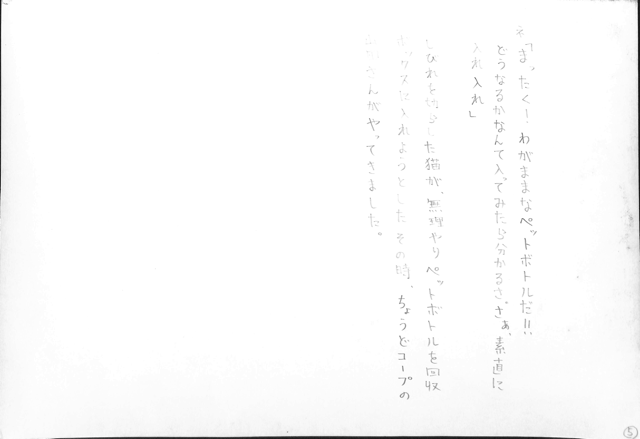 ネ「まったく！わがままなペットボトルだ！！
どうなるかなんて入ってみたら分かるさ。さぁ、素直に
入れ入れ」
しびれを切らした猫が、無理やりペットボトルを回収
ボックスに入れようとしたその時、ちょうどコープの
さんがやってきました。
5